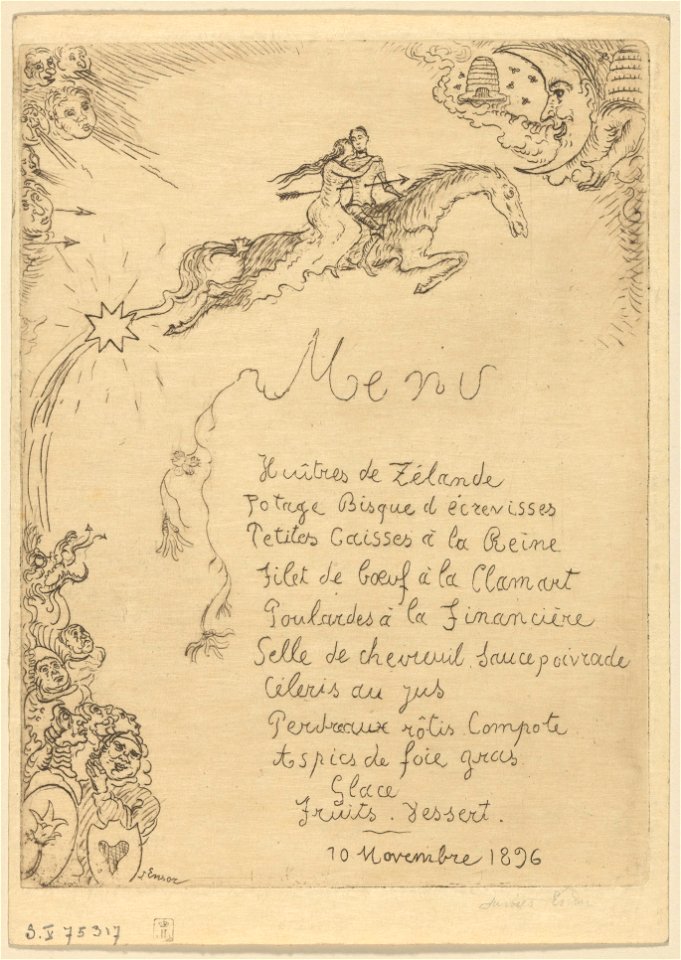 Menu
Huîtres de Zélande
Potage Bisque d'écrevisses
Petites Caisses à la Reine
Filet de bœuf à la Clamart
Poulardes à la Financière
Selle de chevreuil, Sauce poivrade
Céleris au jus
Perdreaux rôtis. Compote
Aspics de foie gras
Glace
Fruits. Dessert.
10 Novembre 1896
Ensor
S.V 75317